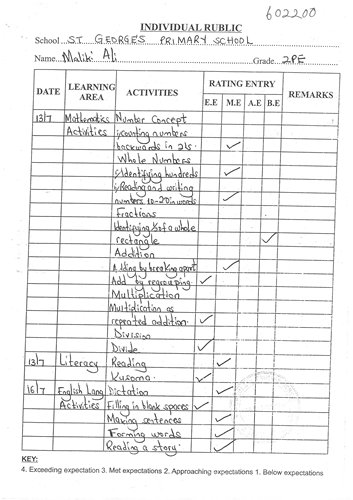 602200
INDIVIDUAL RUBLIC
School ST GEORGES PRIMARY SCHOOL
Name Maliki Ali Grade 2PE
DATE LEARNING AREA ACTIVITIES RATING ENTRY REMARKS
E.E M.E A.E B.E
13/7 Mathematics Number Concept
Activities i) counting numbers
backwards in 2's. ✓
Whole Numbers
i) Identifying hundreds ✓
ii) Reading and writing
numbers 10-20 in words ✓
Fractions
Identifying of a whole
rectangle ✓
Addition
Adding by breaking apart ✓
Add by regrouping ✓
Multiplication
Multiplication as
repeated addition ✓
Division
Divide ✓
13/7 Literacy Reading ✓
Kusoma ✓
16/7 English Lang Dictation ✓
Activities Filling in blank spaces ✓
Making sentences ✓
Forming words ✓
Reading a story ✓
KEY:
4. Exceeding expectation 3. Met expectations 2. Approaching expectations 1. Below expectations